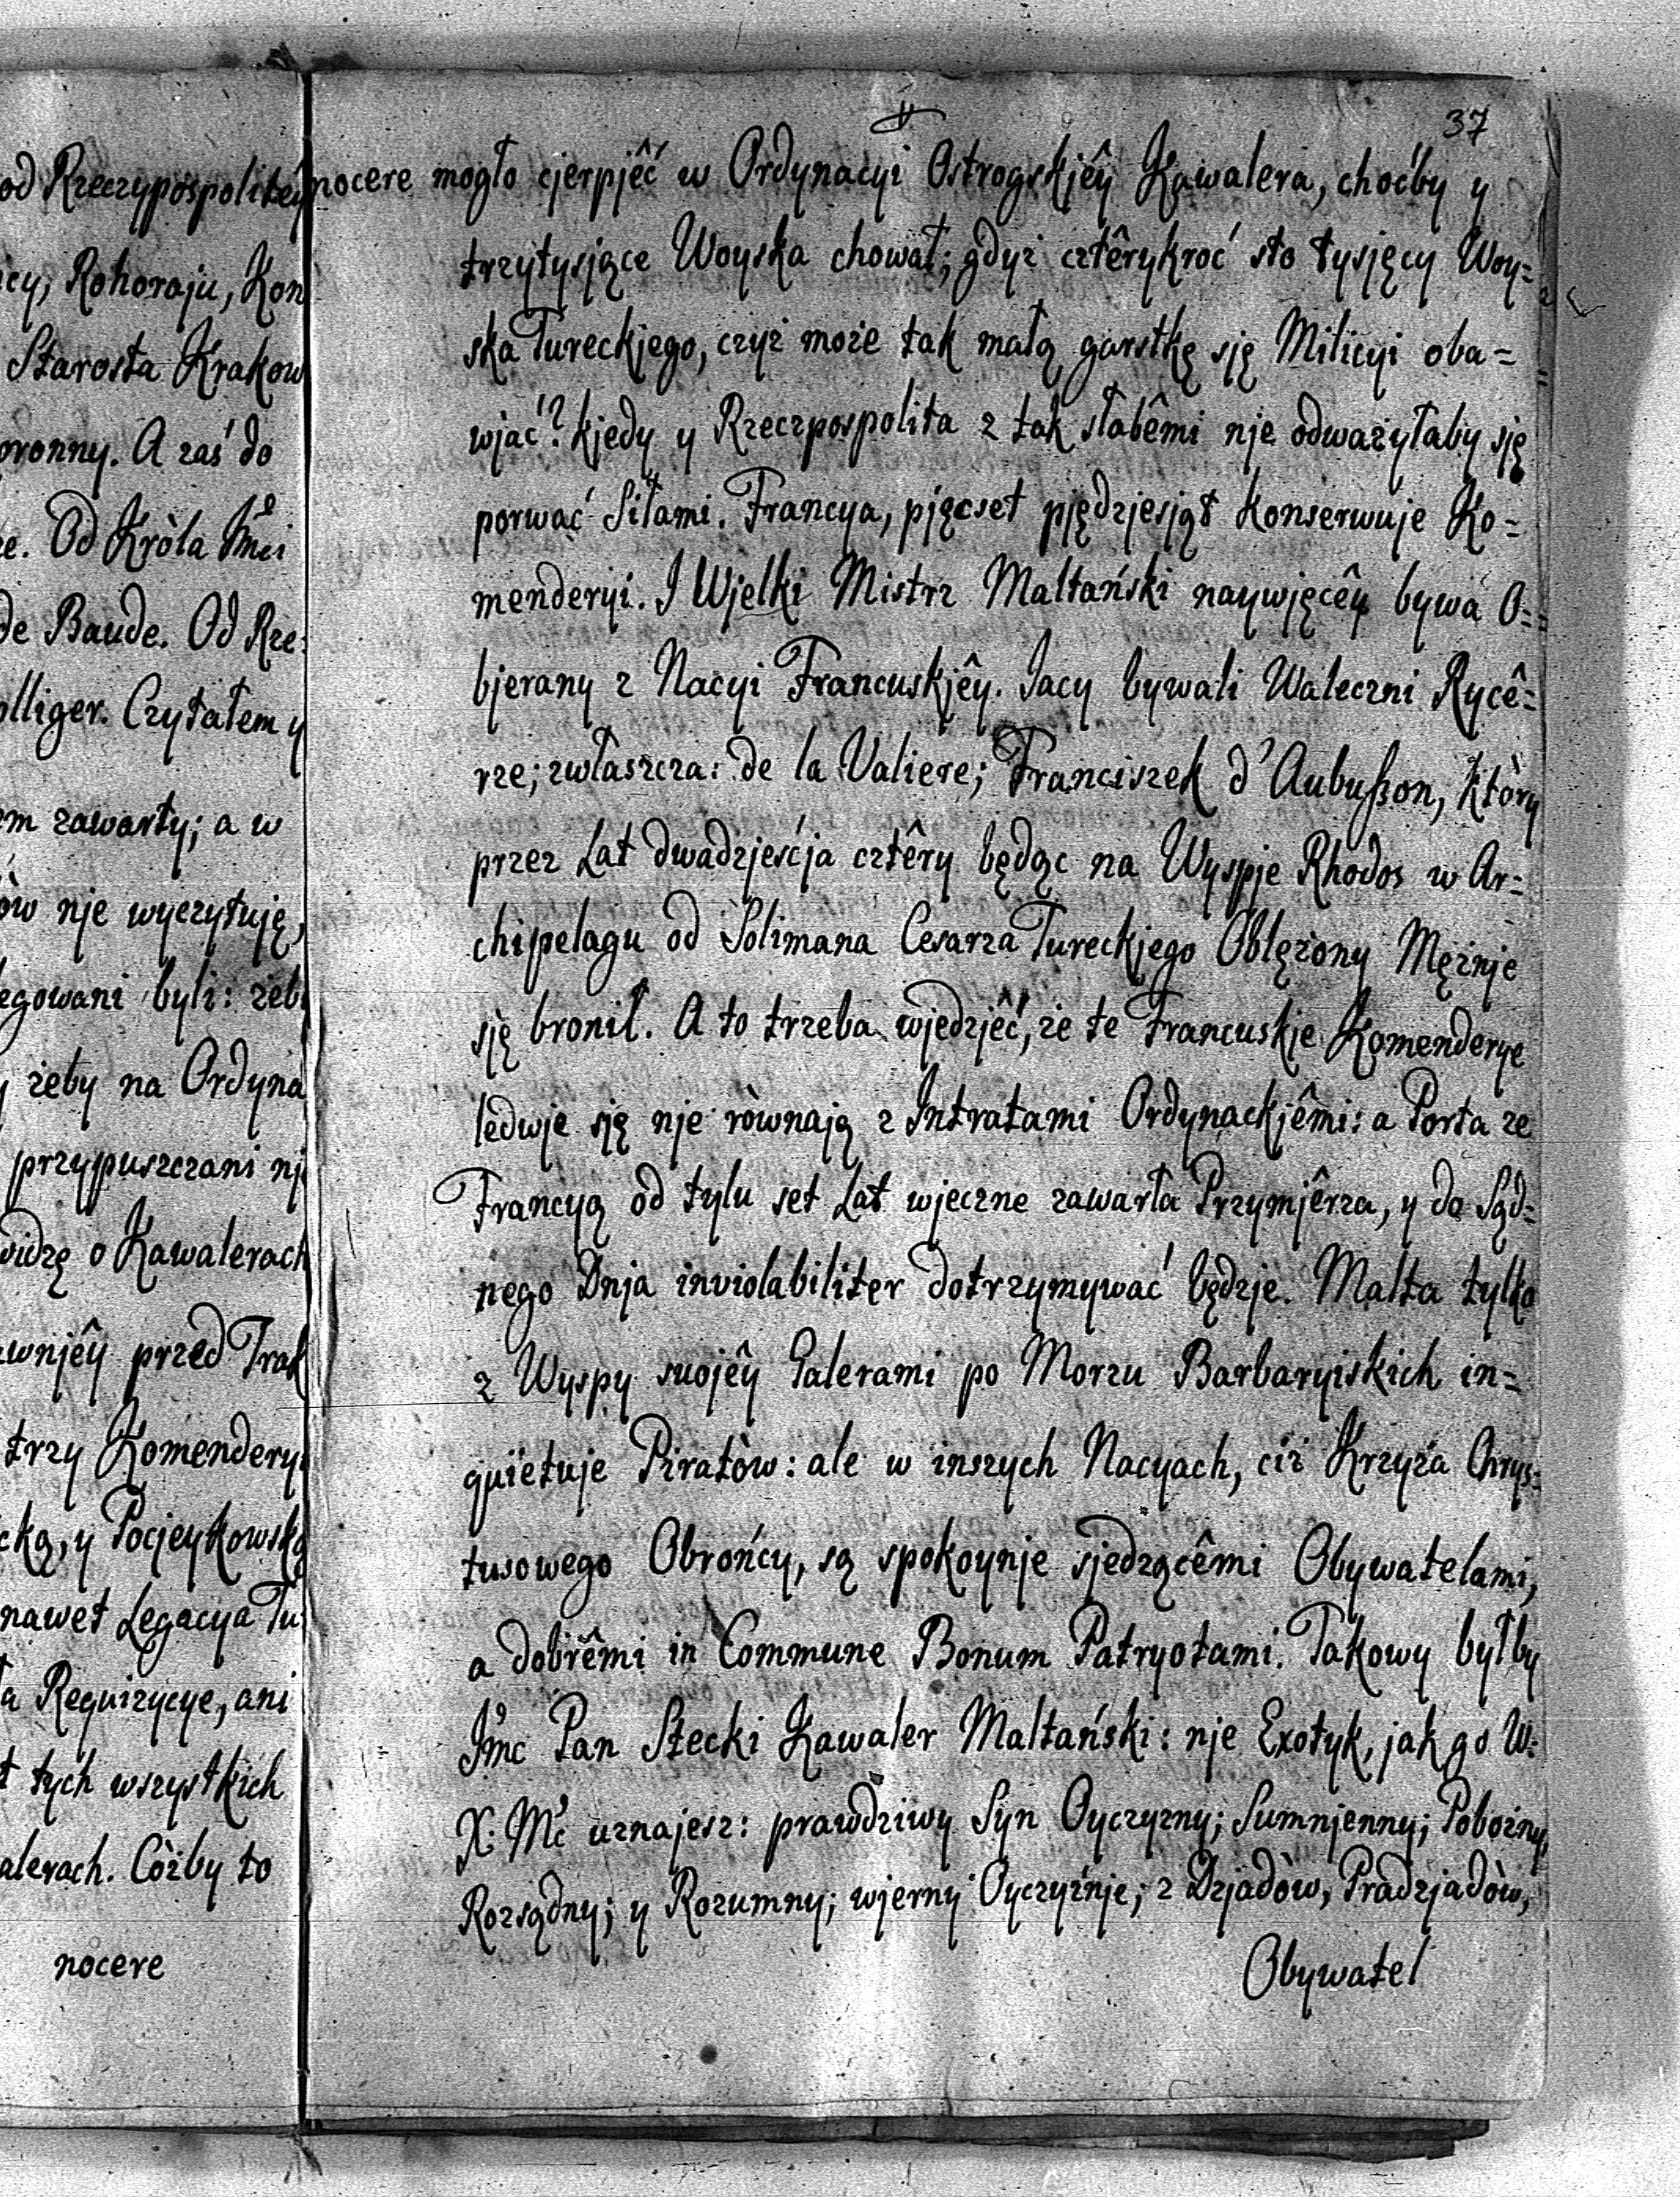 od Rzeczypospolitêy
Rohoraju, Kon
Starosta Krakow
A zaś do
Od Kròla Jmci
de Baude. Od Rze:
Czytałem y
zawarty; a w
nje wyczytuję,
byli: żeb
żeby na Ordyna
przypuszczani nj
o Kawalerach
przed Trak
trzy Komendery
y Pocjeykowską
nawet Legacya Tu
Requizycye, ani
tych wszystkich
Còżby to
nocere
37
nocere mogło cjerpjêć w Ordynacyi Ostrogskjêy Kawalera, choćby y
trzytysjące Woyska chował; gdyż cztêrykroć sto tysjęcy Woy=
ska Tureckjego, czyż może tak małą garstkę sję Milicyi oba=
wjać? kjedy y Rzeczpospolita z tak słabêmi nje odważyłaby sję
porwać Siłami. Francya, pjęcset pjędzjesjąt konserwuje Ko=
menderyi. I Wjelki Mistrz Maltański naywjęcêy bywa O=
bjerany z Nacyi Francuskjêy. Jacy bywali Waleczni Rycê=
rze; zwłaszcza: de la Valiere; Franciszek d'Aubußon, ktòry
przez Lat dwadzjeścja cztêry będąc na Wyspje Rhodos w Ar=
chipelagu od Solimana Cesarza Tureckjego Oblężony Mężnje
sję bronił. A to trzeba wjedzjêć, że te Francuskje Komenderye
ledwje sję nje ròwnają z Intratami Ordynackjêmi: a Porta ze
Francyą od tylu set Lat wjeczne zawarła Przymjêrza, y do Sąd=
nego Dnja inviolabiliter dotrzymywać będzje. Malta tylko
z Wyspy swojêy Galerami po Morzu Barbaryiskich in=
quietuje Piratòw: ale w inszych Nacyach, ciż Krzyża Chrys=
tusowego Obrońcy, są spokoynje sjedzącêmi Obywatelami,
a dobrêmi in Commune Bonum Patryotami. Takowy byłby
Jmc Pan Stecki Kawaler Maltański: nje Exotyk, jak go W:
X: Mć uznajesz: prawdziwy Syn Oyczyzny; Sumnjenny; Pobożny,
Rozsądny; y Rozumny; wjerny Oyczyźnje; z Dzjadòw, Pradzjadòw,
Obywatel